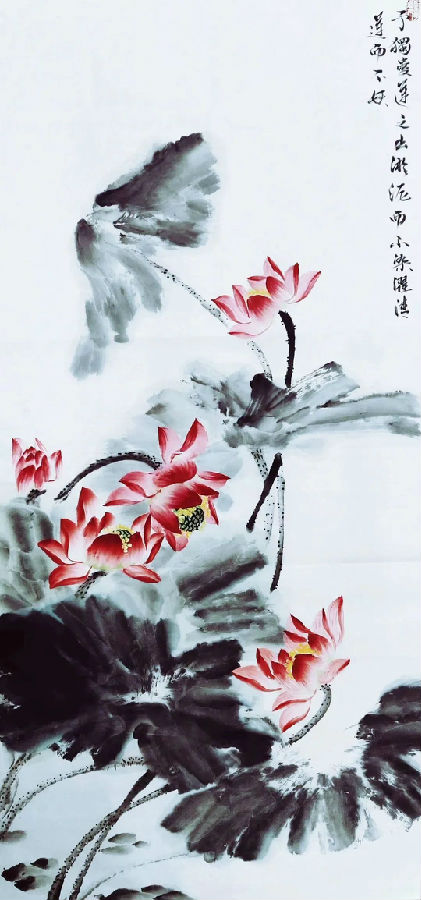 予独爱莲之出淤泥而不染濯清
莲而不妖